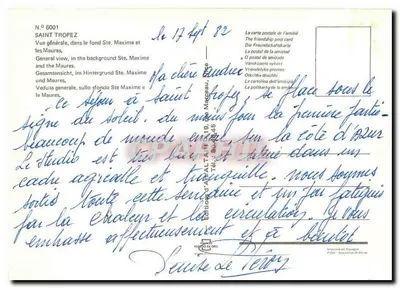 Nº 6001
SAINT TROPEZ
Vue générale, dans le fond Ste. Maxime et
les Maures.
General view, in the background Ste. Maxime
and the Maures.
Gesamtansicht, im Hintergrund Ste. Maxime
und die Maures.
Veduta generale, sullo sfondo Ste Maxime e
les Maures.
La carte postale de l'amitié
The friendship post card
Die Freundschaftskarte
La postal de la amistad
La cartolina dell'amicizia
le 17 Sept 82
Ma chère
Ce séjour à Saint tropez, se place sous le
signe du soleil. du moins pour la première partie
beaucoup de monde encore sur la côte d'azur
Le studio est très bien et situé dans un
cadre agréable et tranquille. nous sommes
sortis toute cette semaine et un peu fatigués
par la chaleur et la circulation. Je vous
embrasse affectueusement et à bientôt
Denise Le